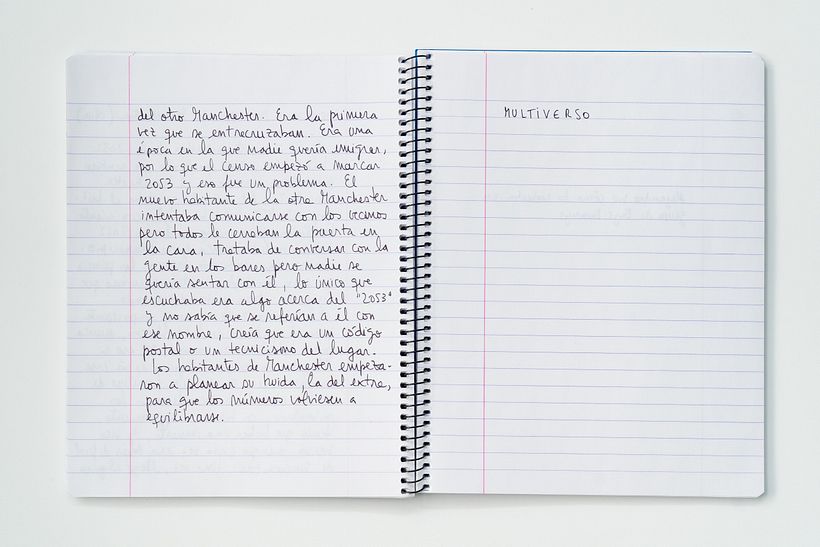 del otro Manchester. Era la primera
vez que se entrecruzaban. Era una
época en la que nadie quería emigrar,
por lo que el censo empezó a marcar
2053 y eso fue un problema. El
nuevo habitante de la otra Manchester
intentaba comunicarse con los vecinos
pero todos le cerraban la puerta en
la cara, trataba de conversar con la
gente en los bares pero nadie se
quería sentar con él, lo único que
escuchaba era algo acerca del "2053"
y no sabía que se referían a él con
ese nombre, creía que era un código
postal o un tecnicismo del lugar.
Los habitantes de Manchester empeza-
ron a planear su huida, la del extra,
para que los números volviesen a
equilibrarse.
MULTIVERSO